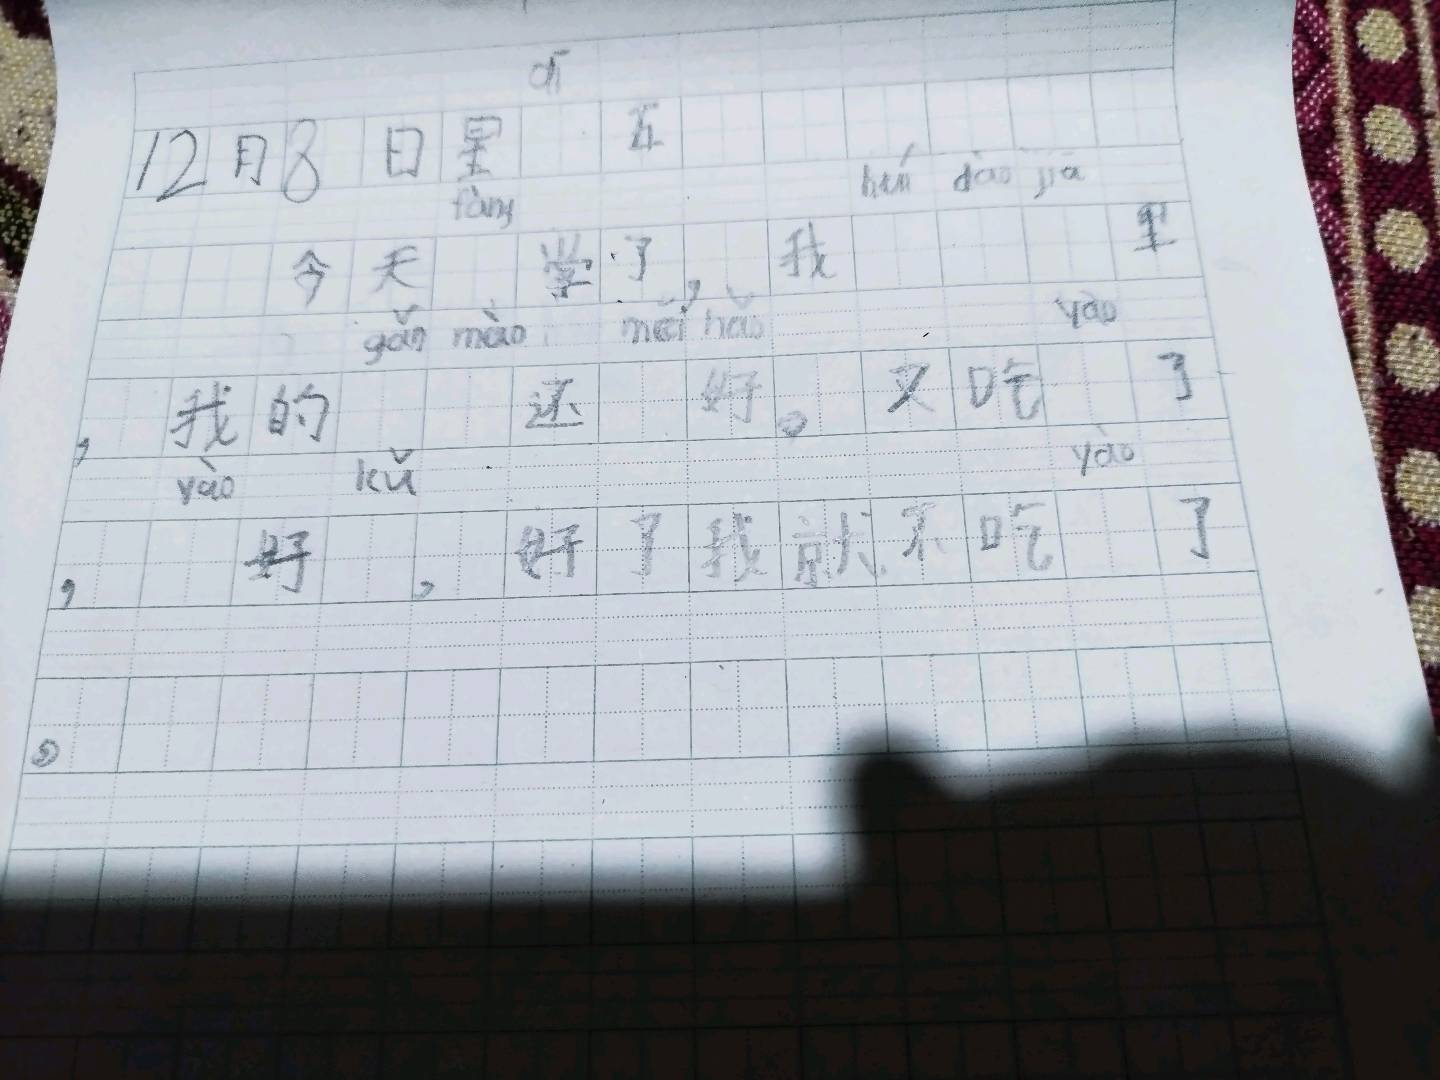 dī
12月8日星 五
fàng
huí dào jiā
今天 学了,我 里
gǎn mào méi hǎo
yào
,我的 还 好。又吃 了
yào kǔ
yào
, 好 ,好了我就不吃 了
。